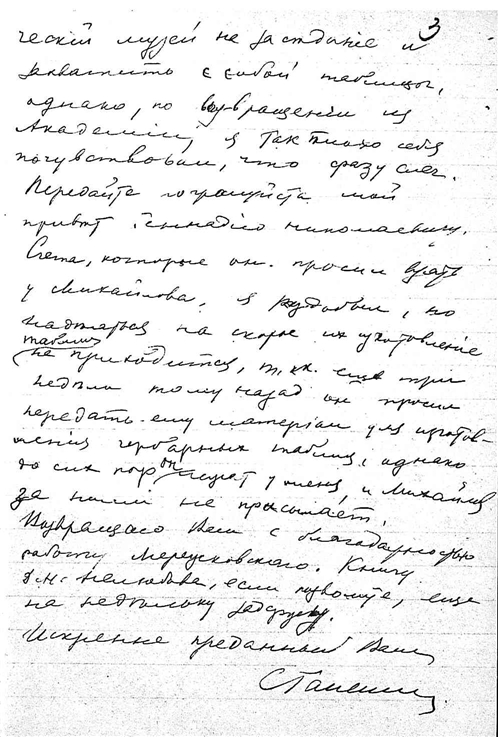 3
ческій музей на заседаніе и
захватить с собой таблицы,
однако, по возвращеніи из
Академіи, я так плохо себя
почувствовал, что сразу слег.
Передайте пожалуйста мой
привет Геннадію Николаевичу.
которые он просил взять
у Михайлова, я раздобыл, но
надеяться на скорое их изготовленіе
таблиц
не приходится, т. к. еще три
недели тому назад он просил
передать ему матеріал для изготов-
ленія гербарных таблиц, однако
до сих пор он лежит у меня, и Михайлов
за ними не присылает.
Возвращаю Вам с благодарностью
работу Мережковского. Книгу
если позволите, еще
на недельку задержу.
Искренне преданный Вам